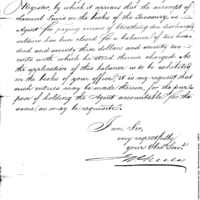 Register, by which it appears that the account of
Samuel Lewis on the books of the Treasury, as
Agent for paying arrears of
soldiers has been closed for a balance of six hun-
dred and seventy three dollars and seventy
cents with which he stood therein charged. As
the application of this balance is to be exhibited
in the books of your office, it is my request that
such entries may be made therein, for the pur-
pose of holding the Agent accountable for the
same, as may be requisite.
I am Sir,
very respectfully
your Obed. Servt.